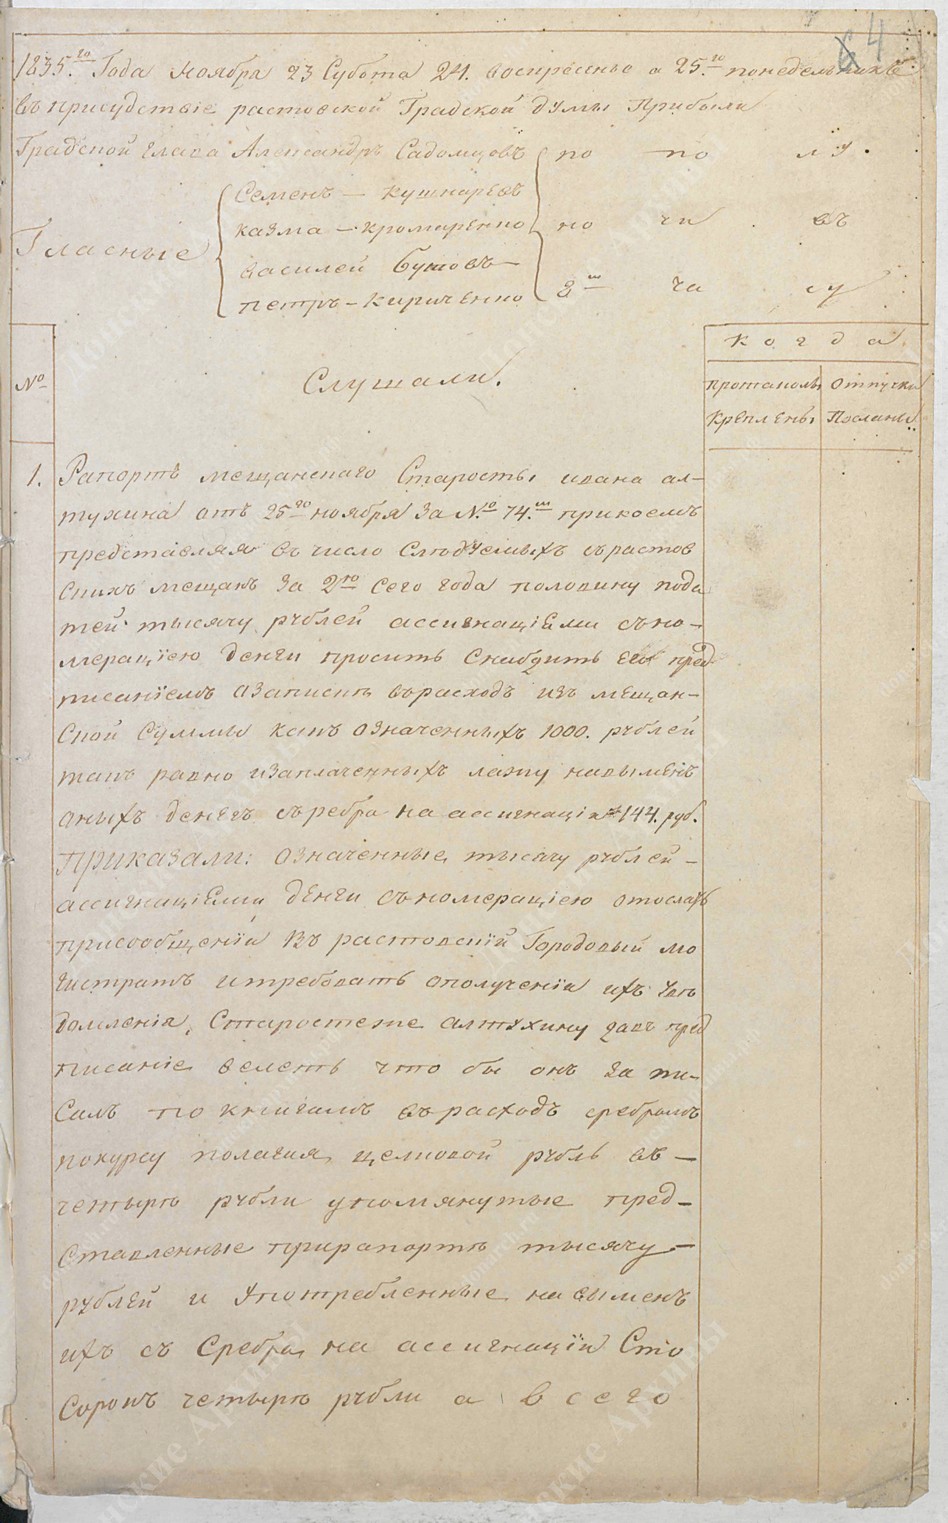 4
1835.го Года Ноября 23 Субота 24. воскресенье а 25.го понедельникъ
въ присудствіе растовской Градской думы Прибыли
Градской глава Александръ Садомцовъ по по лу.
Семенъ — Кушнаревъ
казма — Кромаренко но чи въ
Гласные
василей Бутовъ —
петръ — Кириченко 8 ш ча су
когда
№
Слушали.
протаколы отпуски
Креплены Посланы
1. Рапортъ мещанскаго Старосты ивана ал-
тухина отъ 25го ноября за №.ю 74.ш прикоемъ
представляя въ число Следуемыхъ съ растов
скихъ мещанъ за 2ю сего года половину пода
тей тысячу рублей ассигнаціЕми съно-
мераціею денги проситъ Снабдить Его пред
писаніемъ азаписать върасходъ изъ мещан-
ской Суммы какъ означенныхъ 1000. рублей
такъ равно изаплаченныхъ лажу навымене
аныхъ денегъ съребра на ассигнаціи 144. руб.
ПРИКАЗАЛИ: означенные тысячу рублей —
ассигнаціЕми денги съномераціею отослать
присообщеніи въ растовскій Городовый ма
гистратъ итребовать ополученіи ихъ уве
домленія, Старостеже алтухину давъ пред
писаніе велеть что бы онъ за пи-
салъ по книгамъ въ расходъ сребромъ
покурсу полагая целковой рубль въ —
четыре рубли упомянутые пред-
ставленные прирапорте тысячу —
рублей и употребленные на выменъ
ихъ съ Сребра на ассигнаціи Сто
сорокъ четыре рубли а всего